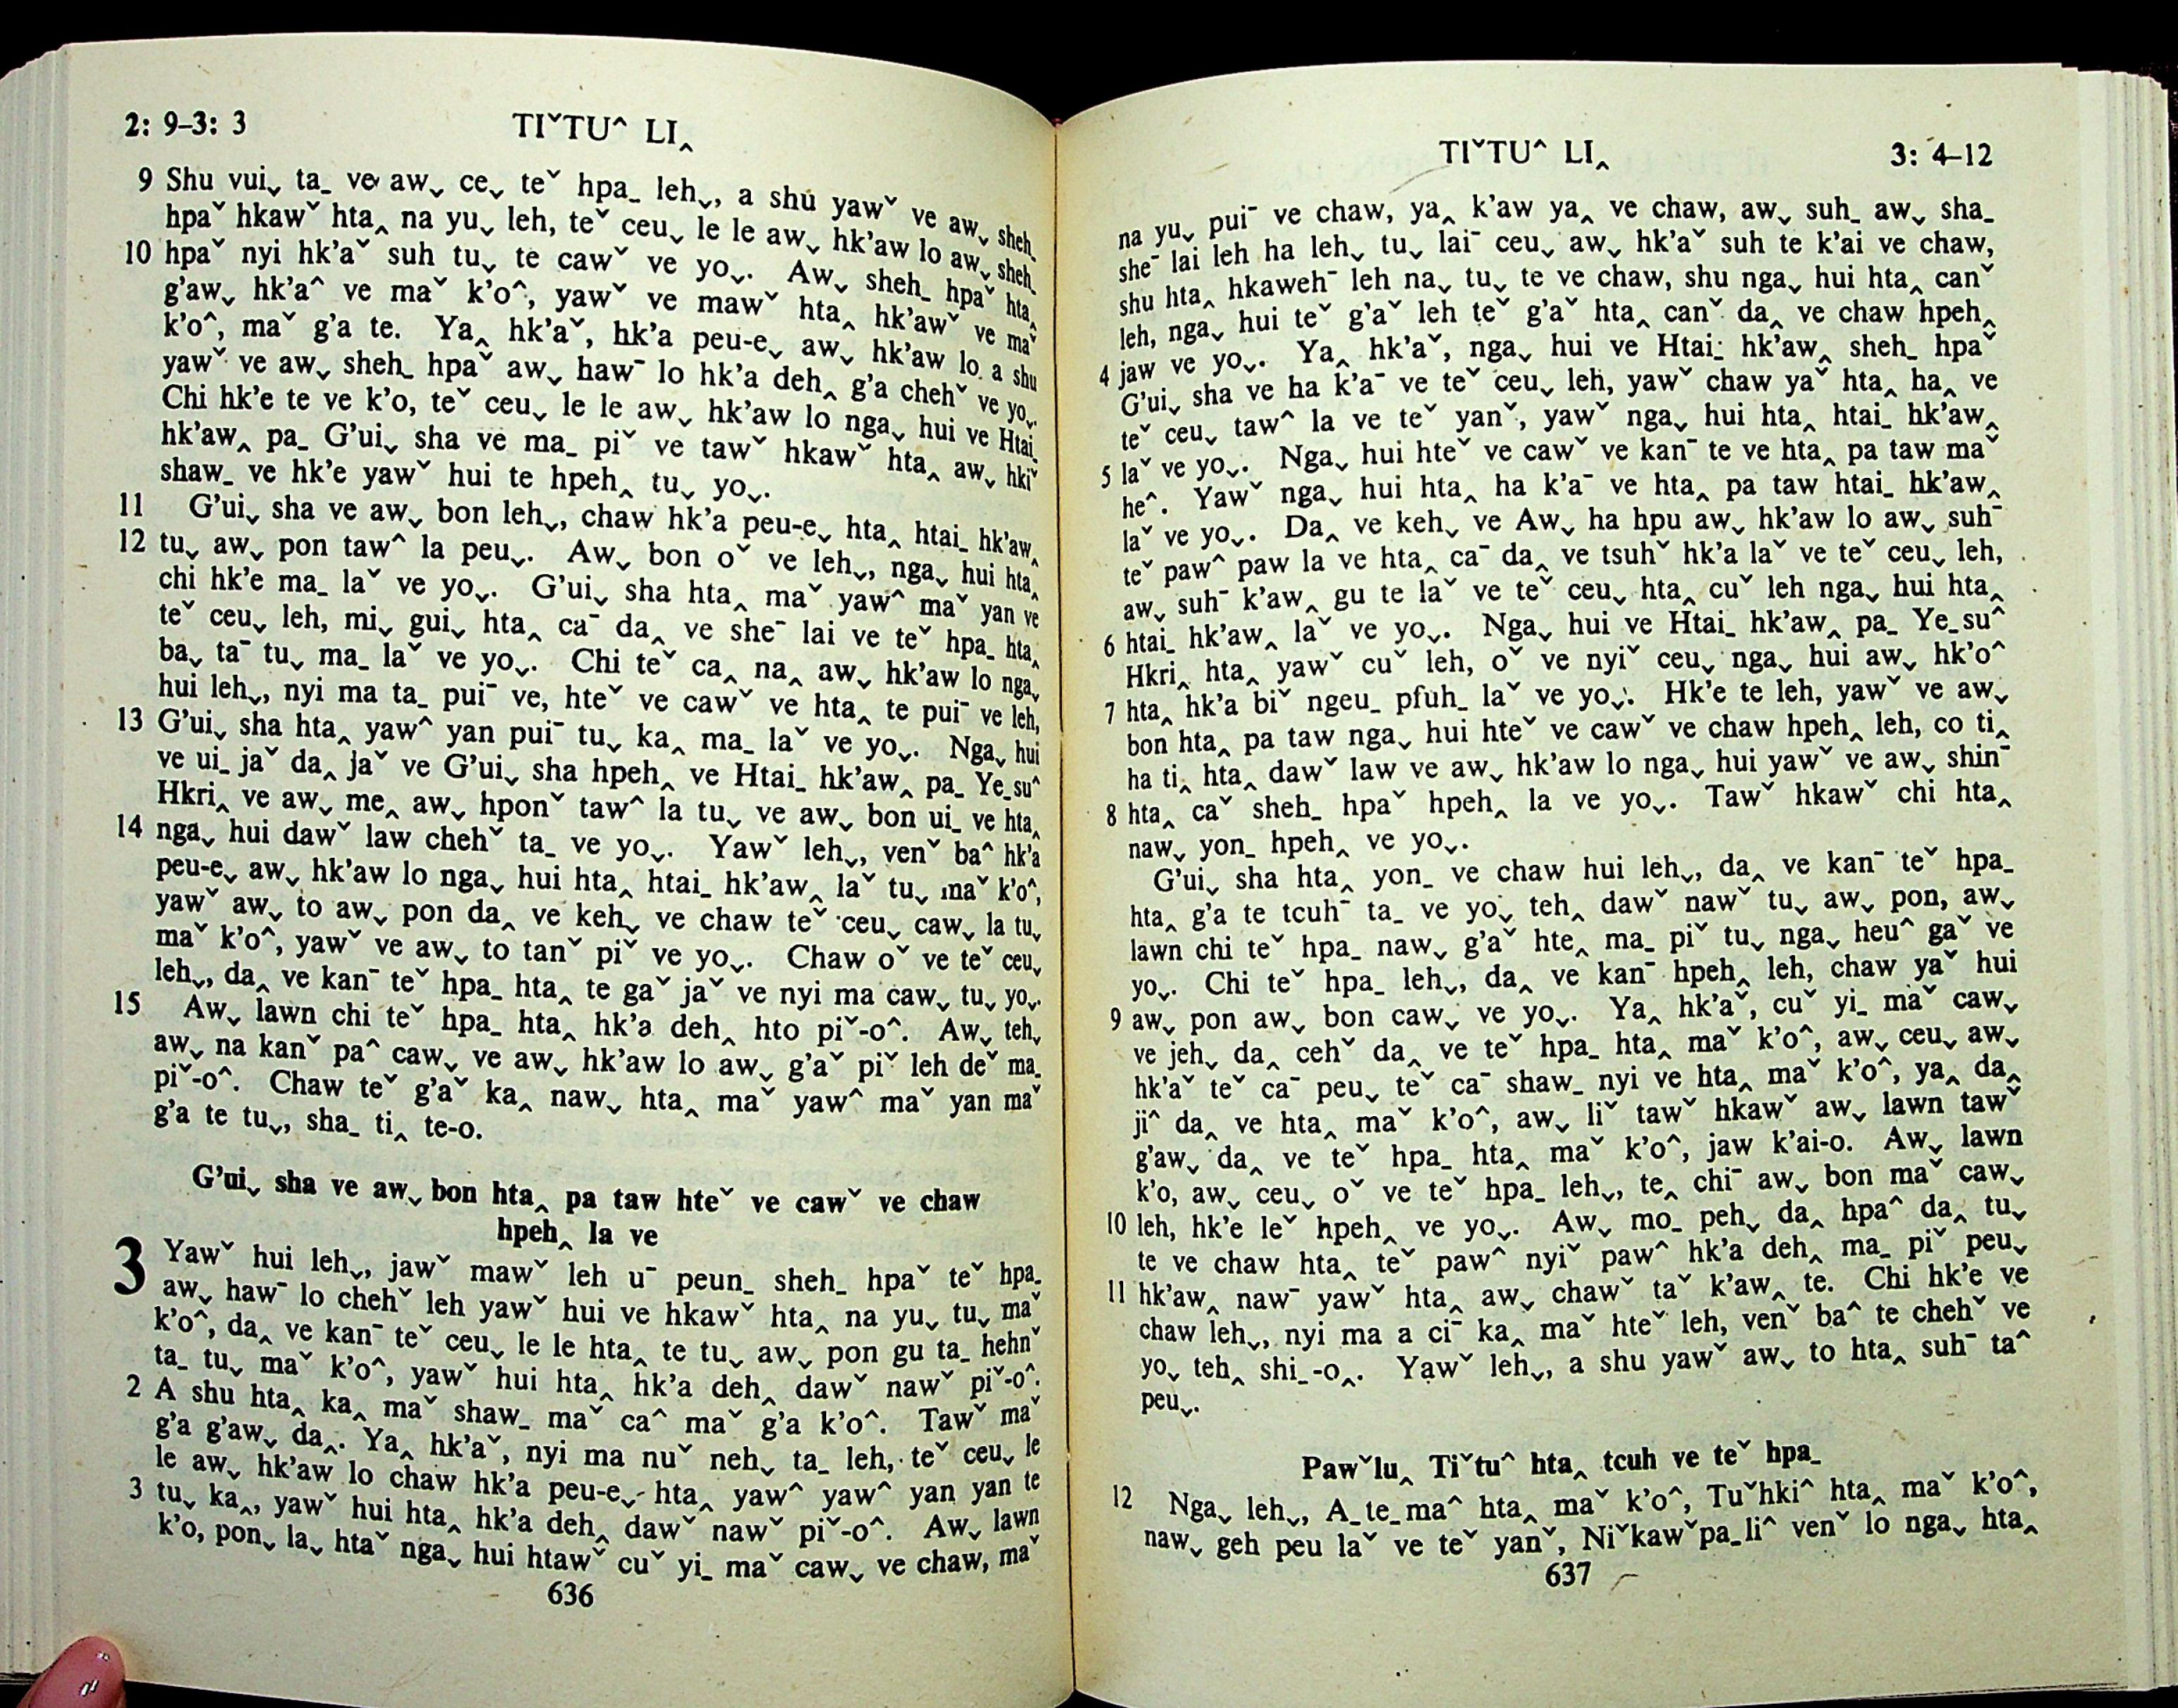 2: 9–3: 3
TIˇTUˆ LI‸
9 Shu vuiˬ ta_ ve awˬ ceˬ teˇ hpa_ lehˬ, a shu yawˇ ve awˬ sheh_
hpaˇ hkawˇ hta‸ na yuˬ leh, teˇ ceuˬ le le awˬ hk'aw lo awˬ sheh_
10 hpaˇ nyi hk'aˇ suh tuˬ te cawˇ ve yoˬ. Awˬ sheh_ hpaˇ hta‸
g'awˬ hk'aˆ ve maˇ k'oˆ, yawˇ ve mawˇ hta‸ hk'awˇ ve maˇ
k'oˆ, maˇ g'a te. Ya‸ hk'aˇ, hk'a peu-eˬ awˬ hk'aw lo a shu
yawˇ ve awˬ sheh_ hpaˇ awˬ hawˉ lo hk'a deh‸ g'a chehˇ ve yoˬ.
Chi hk'e te ve k'o, teˇ ceuˬ le le awˬ hk'aw lo ngaˬ hui ve Htai_
hk'aw‸ pa_ G'uiˬ sha ve ma_ piˇ ve tawˇ hkawˇ hta‸ awˬ hkiˇ
shaw_ ve hk'e yawˇ hui te hpeh‸ tuˬ yoˬ.
11 G'uiˬ sha ve awˬ bon lehˬ, chaw hk'a peu-eˬ hta‸ htai_ hk'aw‸
12 tuˬ awˬ pon tawˆ la peuˬ. Awˬ bon oˇ ve lehˬ, ngaˬ hui hta‸
chi hk'e ma_ laˇ ve yoˬ. G'uiˬ sha hta‸ maˇ yawˆ maˇ yan ve
teˇ ceuˬ leh, miˬ guiˬ hta‸ caˉ da‸ ve sheˉ lai ve teˇ hpa_ hta‸
baˬ taˉ tuˬ ma_ laˇ ve yoˬ. Chi teˇ ca‸ na‸ awˬ hk'aw lo ngaˬ
hui lehˬ, nyi ma ta_ puiˉ ve, hteˇ ve cawˇ ve hta‸ te puiˉ ve leh,
13 G'uiˬ sha hta‸ yawˆ yan puiˉ tuˬ ka‸ ma_ laˇ ve yoˬ. Ngaˬ hui
ve ui_ jaˇ da‸ jaˇ ve G'uiˬ sha hpeh‸ ve Htai_ hk'aw‸ pa_ Ye_suˆ
Hkri‸ ve awˬ me‸ awˬ hponˇ tawˆ la tuˬ ve awˬ bon ui_ ve hta‸
14 ngaˬ hui dawˇ law chehˇ ta_ ve yoˬ. Yawˇ lehˬ, venˇ baˆ hk'a
peu-eˬ awˬ hk'aw lo ngaˬ hui hta‸ htai_ hk'aw‸ laˇ tuˬ maˇ k'oˆ,
yawˇ awˬ to awˬ pon da‸ ve kehˬ ve chaw teˇ ceuˬ cawˬ la tuˬ
maˇ k'oˆ, yawˇ ve awˬ to tanˇ piˇ ve yoˬ. Chaw oˇ ve teˇ ceuˬ
lehˬ, da‸ ve kanˉ teˇ hpa_ hta‸ te gaˇ jaˇ ve nyi ma cawˬ tuˬ yoˬ.
15 Awˬ lawn chi teˇ hpa_ hta‸ hk'a deh‸ hto piˇ-oˆ. Awˬ teh‸
awˬ na kanˇ paˆ cawˬ ve awˬ hk'aw lo awˬ g'aˇ piˇ leh deˇ ma_
piˇ-oˆ. Chaw teˇ g'aˇ ka‸ nawˬ hta‸ maˇ yawˆ maˇ yan maˇ
g'a te tuˬ, sha_ ti‸ te-o.
G'uiˬ sha ve awˬ bon hta‸ pa taw hteˇ ve cawˇ ve chaw
hpeh‸ la ve
3 Yawˇ hui lehˬ, jawˇ mawˇ leh uˉ peun_ sheh_ hpaˇ teˇ hpa_
awˬ hawˉ lo chehˇ leh yawˇ hui ve hkawˇ hta‸ na yuˬ tuˬ maˇ
k'oˆ, da‸ ve kanˉ teˇ ceuˬ le le hta‸ te tuˬ awˬ pon gu ta_ hehnˇ
ta_ tuˬ maˇ k'oˆ, yawˇ hui hta‸ hk'a deh‸ dawˇ nawˇ piˇ-oˆ.
2 A shu hta‸ ka‸ maˇ shaw_ maˇ caˆ maˇ g'a k'oˆ. Tawˇ maˇ
g'a g'awˬ da‸. Ya‸ hk'aˇ, nyi ma nuˇ nehˬ ta_ leh, teˇ ceuˬ le
le awˬ hk'aw lo chaw hk'a peu-eˬ hta‸ yawˆ yawˆ yan yan te
3 tuˬ ka‸, yawˇ hui hta‸ hk'a deh‸ dawˇ nawˇ piˇ-oˆ. Awˬ lawn
k'o, ponˬ laˬ htaˇ ngaˬ hui htawˇ cuˇ yi_ maˇ cawˬ ve chaw, maˇ
636
TIˇTUˆ LI‸
3: 4–12
na yuˬ puiˉ ve chaw, ya‸ k'aw ya‸ ve chaw, awˬ suh_ awˬ sha_
sheˉ lai leh ha lehˬ tuˬ laiˉ ceuˬ awˬ hk'aˇ suh te k'ai ve chaw,
shu hta‸ hkawehˉ leh naˬ tuˬ te ve chaw, shu ngaˬ hui hta‸ canˇ
leh, ngaˬ hui teˇ g'aˇ leh teˇ g'aˇ hta‸ canˇ da‸ ve chaw hpeh‸
4 jaw ve yoˬ. Ya‸ hk'aˇ, ngaˬ hui ve Htai_ hk'aw‸ sheh_ hpaˇ
G'uiˬ sha ve ha k'aˉ ve teˇ ceuˬ leh, yawˇ chaw yaˇ hta‸ ha‸ ve
teˇ ceuˬ tawˆ la ve teˇ yanˇ, yawˇ ngaˬ hui hta‸ htai_ hk'aw‸
5 laˇ ve yoˬ. Ngaˬ hui hteˇ ve cawˇ ve kanˉ te ve hta‸ pa taw maˇ
heˆ. Yawˇ ngaˬ hui hta‸ ha k'aˉ ve hta‸ pa taw htai_ hk'aw‸
laˇ ve yoˬ. Da‸ ve kehˬ ve Awˬ ha hpu awˬ hk'aw lo awˬ suhˉ
teˇ pawˆ paw la ve hta‸ caˉ da‸ ve tsuhˇ hk'a laˇ ve teˇ ceuˬ leh,
awˬ suhˉ k'aw‸ gu te laˇ ve teˇ ceuˬ hta‸ cuˇ leh ngaˬ hui hta‸
6 htai_ hk'aw‸ laˇ ve yoˬ. Ngaˬ hui ve Htai_ hk'aw‸ pa_ Ye_suˆ
Hkri‸ hta‸ yawˇ cuˇ leh, oˇ ve nyiˇ ceuˬ ngaˬ hui awˬ hk'oˆ
7 hta‸ hk'a biˇ ngeu_ pfuh_ laˇ ve yoˬ. Hk'e te leh, yawˇ ve awˬ
bon hta‸ pa taw ngaˬ hui hteˇ ve cawˇ ve chaw hpeh‸ leh, co ti‸
ha ti‸ hta‸ dawˇ law ve awˬ hk'aw lo ngaˬ hui yawˇ ve awˬ shinˉ
8 hta‸ caˇ sheh_ hpaˇ hpeh‸ la ve yoˬ. Tawˇ hkawˇ chi hta‸
nawˬ yon_ hpeh‸ ve yoˬ.
G'uiˬ sha hta‸ yon_ ve chaw hui lehˬ, da‸ ve kanˉ teˇ hpa_
hta‸ g'a te tcuhˉ ta_ ve yoˬ teh‸ dawˇ nawˇ tuˬ awˬ pon, awˬ
lawn chi teˇ hpa_ nawˬ g'aˇ hte‸ ma_ piˇ tuˬ ngaˬ heuˆ gaˇ ve
yoˬ. Chi teˇ hpa_ lehˬ, da‸ ve kanˉ hpeh‸ leh, chaw yaˇ hui
9 awˬ pon awˬ bon cawˬ ve yoˬ. Ya‸ hk'aˇ, cuˇ yi_ maˇ cawˬ
ve jehˬ da‸ cehˇ da‸ ve teˇ hpa_ hta‸ maˇ k'oˆ, awˬ ceuˬ awˬ
hk'aˇ teˇ caˉ peuˬ teˇ caˉ shaw_ nyi ve hta‸ maˇ k'oˆ, ya‸ da‸
jiˆ da‸ ve hta‸ maˇ k'oˆ, awˬ liˇ tawˇ hkawˇ awˬ lawn tawˇ
g'awˬ da‸ ve teˇ hpa_ hta‸ maˇ k'oˆ, jaw k'ai-o. Awˬ lawn
k'o, awˬ ceuˬ oˇ ve teˇ hpa_ lehˬ, te‸ chiˉ awˬ bon maˇ cawˬ
10 leh, hk'e leˇ hpeh‸ ve yoˬ. Awˬ mo_ pehˬ da‸ hpaˆ da‸ tuˬ
te ve chaw hta‸ teˇ pawˆ nyiˇ pawˆ hk'a deh‸ ma_ piˇ peuˬ
11 hk'aw‸ nawˉ yawˇ hta‸ awˬ chawˇ taˇ k'aw‸ te. Chi hk'e ve
chaw lehˬ, nyi ma a ciˉ ka‸ maˇ hteˇ leh, venˇ baˆ te chehˇ ve
yoˬ teh‸ shi_-o‸. Yawˇ lehˬ, a shu yawˇ awˬ to hta‸ suhˉ taˆ
peuˬ.
Pawˇlu‸ Tiˇtuˆ hta‸ tcuh ve teˇ hpa_
12 Ngaˬ lehˬ, A_te_maˆ hta‸ maˇ k'oˆ, Tuˇhkiˆ hta‸ maˇ k'oˆ,
nawˬ geh peu laˇ ve teˇ yanˇ, Niˇkawˇpa_liˆ venˇ lo ngaˬ hta‸
637